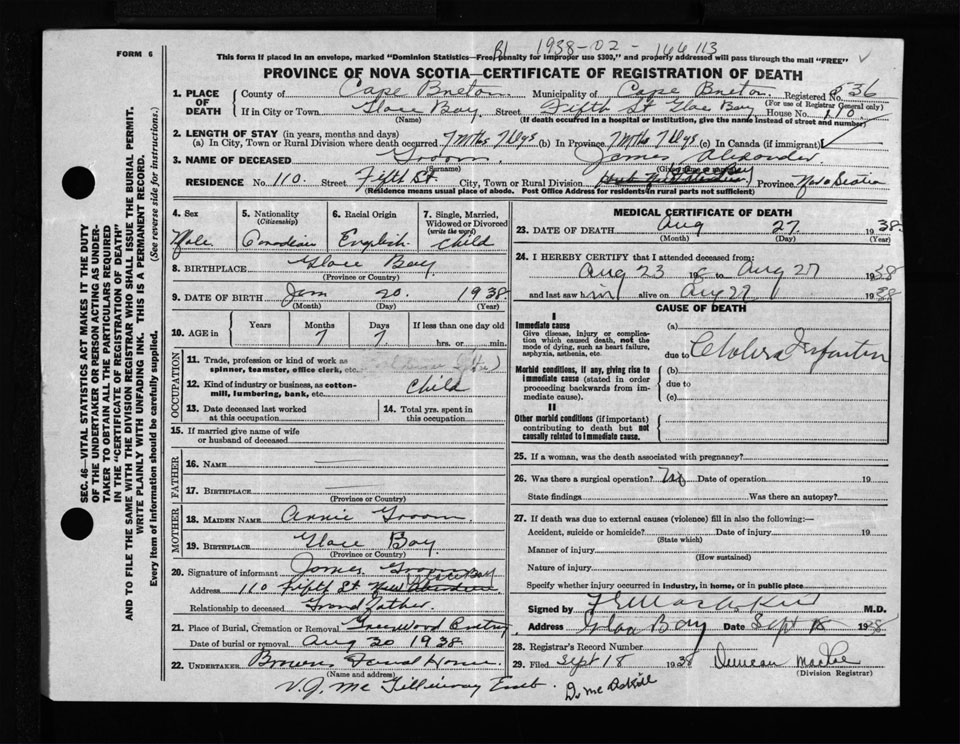 FORM 6
B1 1938-02-166113
This form if placed in an envelope, marked "Dominion Statistics—Free, penalty for improper use $300," and properly addressed will pass through the mail "FREE"
PROVINCE OF NOVA SCOTIA—CERTIFICATE OF REGISTRATION OF DEATH
1. PLACE OF DEATH County of Cape Breton Municipality of Cape Breton Registered No. 836
(For use of Registrar General only)
If in City or Town Glace Bay Street Fifth St Glace Bay House No. 110
(Name) (If death occurred in a hospital or institution, give the name instead of street and number)
2. LENGTH OF STAY (in years, months and days)
(a) In City, Town or Rural Division where death occurred 7 Mths 7 Dys (b) In Province 7 Mths 7 Dys (c) In Canada (if immigrant)
3. NAME OF DECEASED Groom James Alexander
(Surname)
RESIDENCE No. 110. Street Fifth St City, Town or Rural Division Glace Bay Province Nova Scotia
(Residence means usual place of abode. Post Office Address for residents in rural parts not sufficient)
4. Sex Male
5. Nationality (Citizenship) Canadian
6. Racial Origin English
7. Single, Married, Widowed or Divorced (write the word) child
8. BIRTHPLACE Glace Bay
(Province or County)
9. DATE OF BIRTH Jan 20. 1938
(Month) (Day) (Year)
10. AGE in Years Months 7 Days 7 If less than one day old
hrs. or min.
OCCUPATION
11. Trade, profession or kind of work as spinner, teamster, office clerk, etc.
12. Kind of industry or business, as cotton-mill, lumbering, bank, etc. Child
13. Date deceased last worked at this occupation
14. Total yrs. spent in this occupation
15. If married give name of wife or husband of deceased
FATHER
16. Name
17. Birthplace
(Province or Country)
MOTHER
18. Maiden Name Annie Groom
19. Birthplace Glace Bay
(Province or Country)
20. Signature of informant James Groom
Address 110 Fifth St New Aberdeen Glace Bay
Relationship to deceased Grand Father
21. Place of Burial, Cremation or Removal Greenwood
Date of burial or removal Aug 20 1938
22. UNDERTAKER Browns Home
(Name and address)
MEDICAL CERTIFICATE OF DEATH
23. DATE OF DEATH Aug 27 1938
(Month) (Day) (Year)
24. I HEREBY CERTIFY that I attended deceased from:
Aug 23 to Aug 27 1938
and last saw him alive on Aug 27 1938
CAUSE OF DEATH
I
Immediate cause
Give disease, injury or complication which caused death, not the mode of dying, such as heart failure, asphyxia, asthenia, etc.
(a)
due to Cholera Infantum
Morbid conditions, if any, giving rise to immediate cause (stated in order proceeding backwards from immediate cause).
(b)
due to
(c)
II
Other morbid conditions (if important) contributing to death but not causally related to immediate cause.
25. If a woman, was the death associated with pregnancy?
26. Was there a surgical operation? No Date of operation 19
State findings Was there an autopsy?
27. If death was due to external causes (violence) fill in also the following:—
Accident, suicide or homicide? Date of injury 19
(State which)
Manner of injury
(How sustained)
Nature of injury
Specify whether injury occurred in industry, in home, or in public place
Signed by M.D.
Address Glace Bay Date Sept 18 1938
28. Registrar's Record Number
29. Filed Sept 18 1938 Duncan MacRae
(Division Registrar)
D. McAskill
SEC. 46—VITAL STATISTICS ACT MAKES IT THE DUTY
OF THE UNDERTAKER OR PERSON ACTING AS UNDER-
TAKER TO OBTAIN ALL THE PARTICULARS REQUIRED
IN THE "CERTIFICATE OF REGISTRATION OF DEATH"
AND TO FILE THE SAME WITH THE DIVISION REGISTRAR WHO SHALL ISSUE THE BURIAL PERMIT.
WRITE PLAINLY WITH UNFADING INK. THIS IS A PERMANENT RECORD.
Every item of information should be carefully supplied. (See reverse side for instructions.)